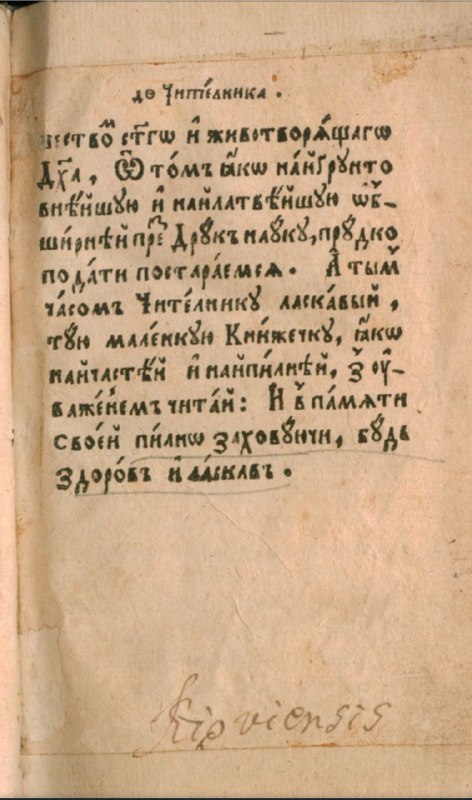 до Чите́лника .
шество᷃ ст҃гѡ и҆ животворѧ́щагѡ
Дх҃а , Ѿ то́мъ ꙗ҆кѡ на́йґрꙋнто
внѣ́йшꙋю и҆ найлатвѣ́йшꙋю ѡ҆б̾-
ши́рнѣй прⷥе Дрꙋ́къ наꙋкꙋ, прꙋ́дко
пода́ти постара́емсѧ . А҆ тым̾
ча́сомъ Чите́лникꙋ ласка́вый ,
тꙋ́ю мале́нкꙋю Кни́жечкꙋ, ꙗ҆кѡ
найчастѣ́й и҆ найпи́лнѣй, з̾ оу҆-
важе́нїемъ чита́й : И҆ в̾ па́мѧти
своє́й пи́лнѡ заховꙋ́ючи, бꙋ́дь
здоро́въ и҆ ла́скавъ .
Kioviensis